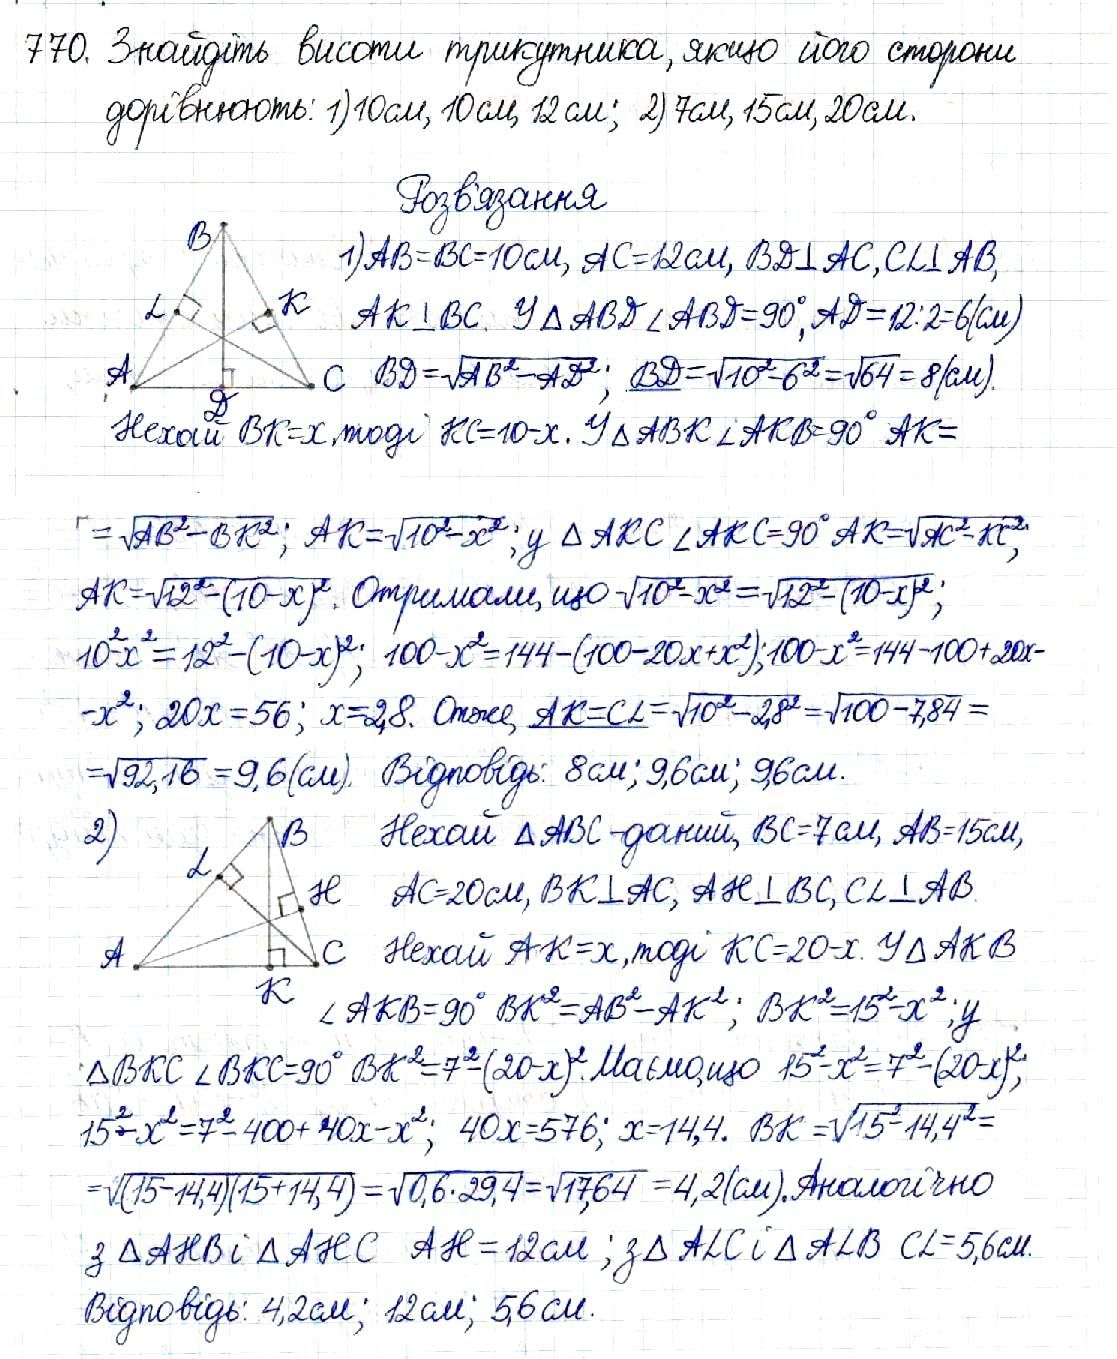 770. Знайдіть висоти трикутника, якщо його сторони
дорівнюють: 1) 10см, 10см, 12см; 2) 7см, 15см, 20см.
Розв'язання
B
L
K
A
C
D
1) AB=BC=10см, AC=12см, BD⊥AC, CL⊥AB,
AK⊥BC. У △ABD ∠ABD=90°, AD=12:2=6(см)
BD=√(AB²-AD²); BD=√(10²-6²)=√64=8(см).
Нехай BK=x, тоді KC=10-x. У △ABK ∠AKB=90° AK=
=√(AB²-BK²); AK=√(10²-x²); у △AKC ∠AKC=90° AK=√(AC²-KC²);
AK=√(12²-(10-x)²). Отримали, що √(10²-x²)=√(12²-(10-x)²);
10²-x²=12²-(10-x)²; 100-x²=144-(100-20x+x²); 100-x²=144-100+20x-
-x²; 20x=56; x=2,8. Отже, AK=CL=√(10²-2,8²)=√(100-7,84)=
=√92,16=9,6(см). Відповідь: 8см; 9,6см; 9,6см.
2)
B
L
H
A
C
K
Нехай △ABC-даний, BC=7см, AB=15см,
AC=20см, BK⊥AC, AH⊥BC, CL⊥AB
Нехай AK=x, тоді KC=20-x. У △AKB
∠AKB=90° BK²=AB²-AK²; BK²=15²-x²; у
△BKC ∠BKC=90° BK²=7²-(20-x)². Маємо, що 15²-x²=7²-(20-x)²;
15²-x²=7²-400+40x-x²; 40x=576; x=14,4. BK=√(15²-14,4²)=
=√((15-14,4)(15+14,4))=√(0,6·29,4)=√17,64=4,2(см). Аналогічно
з △AHB і △AHC AH=12см; з △ALC і △ALB CL=5,6см.
Відповідь: 4,2см; 12см; 5,6см.